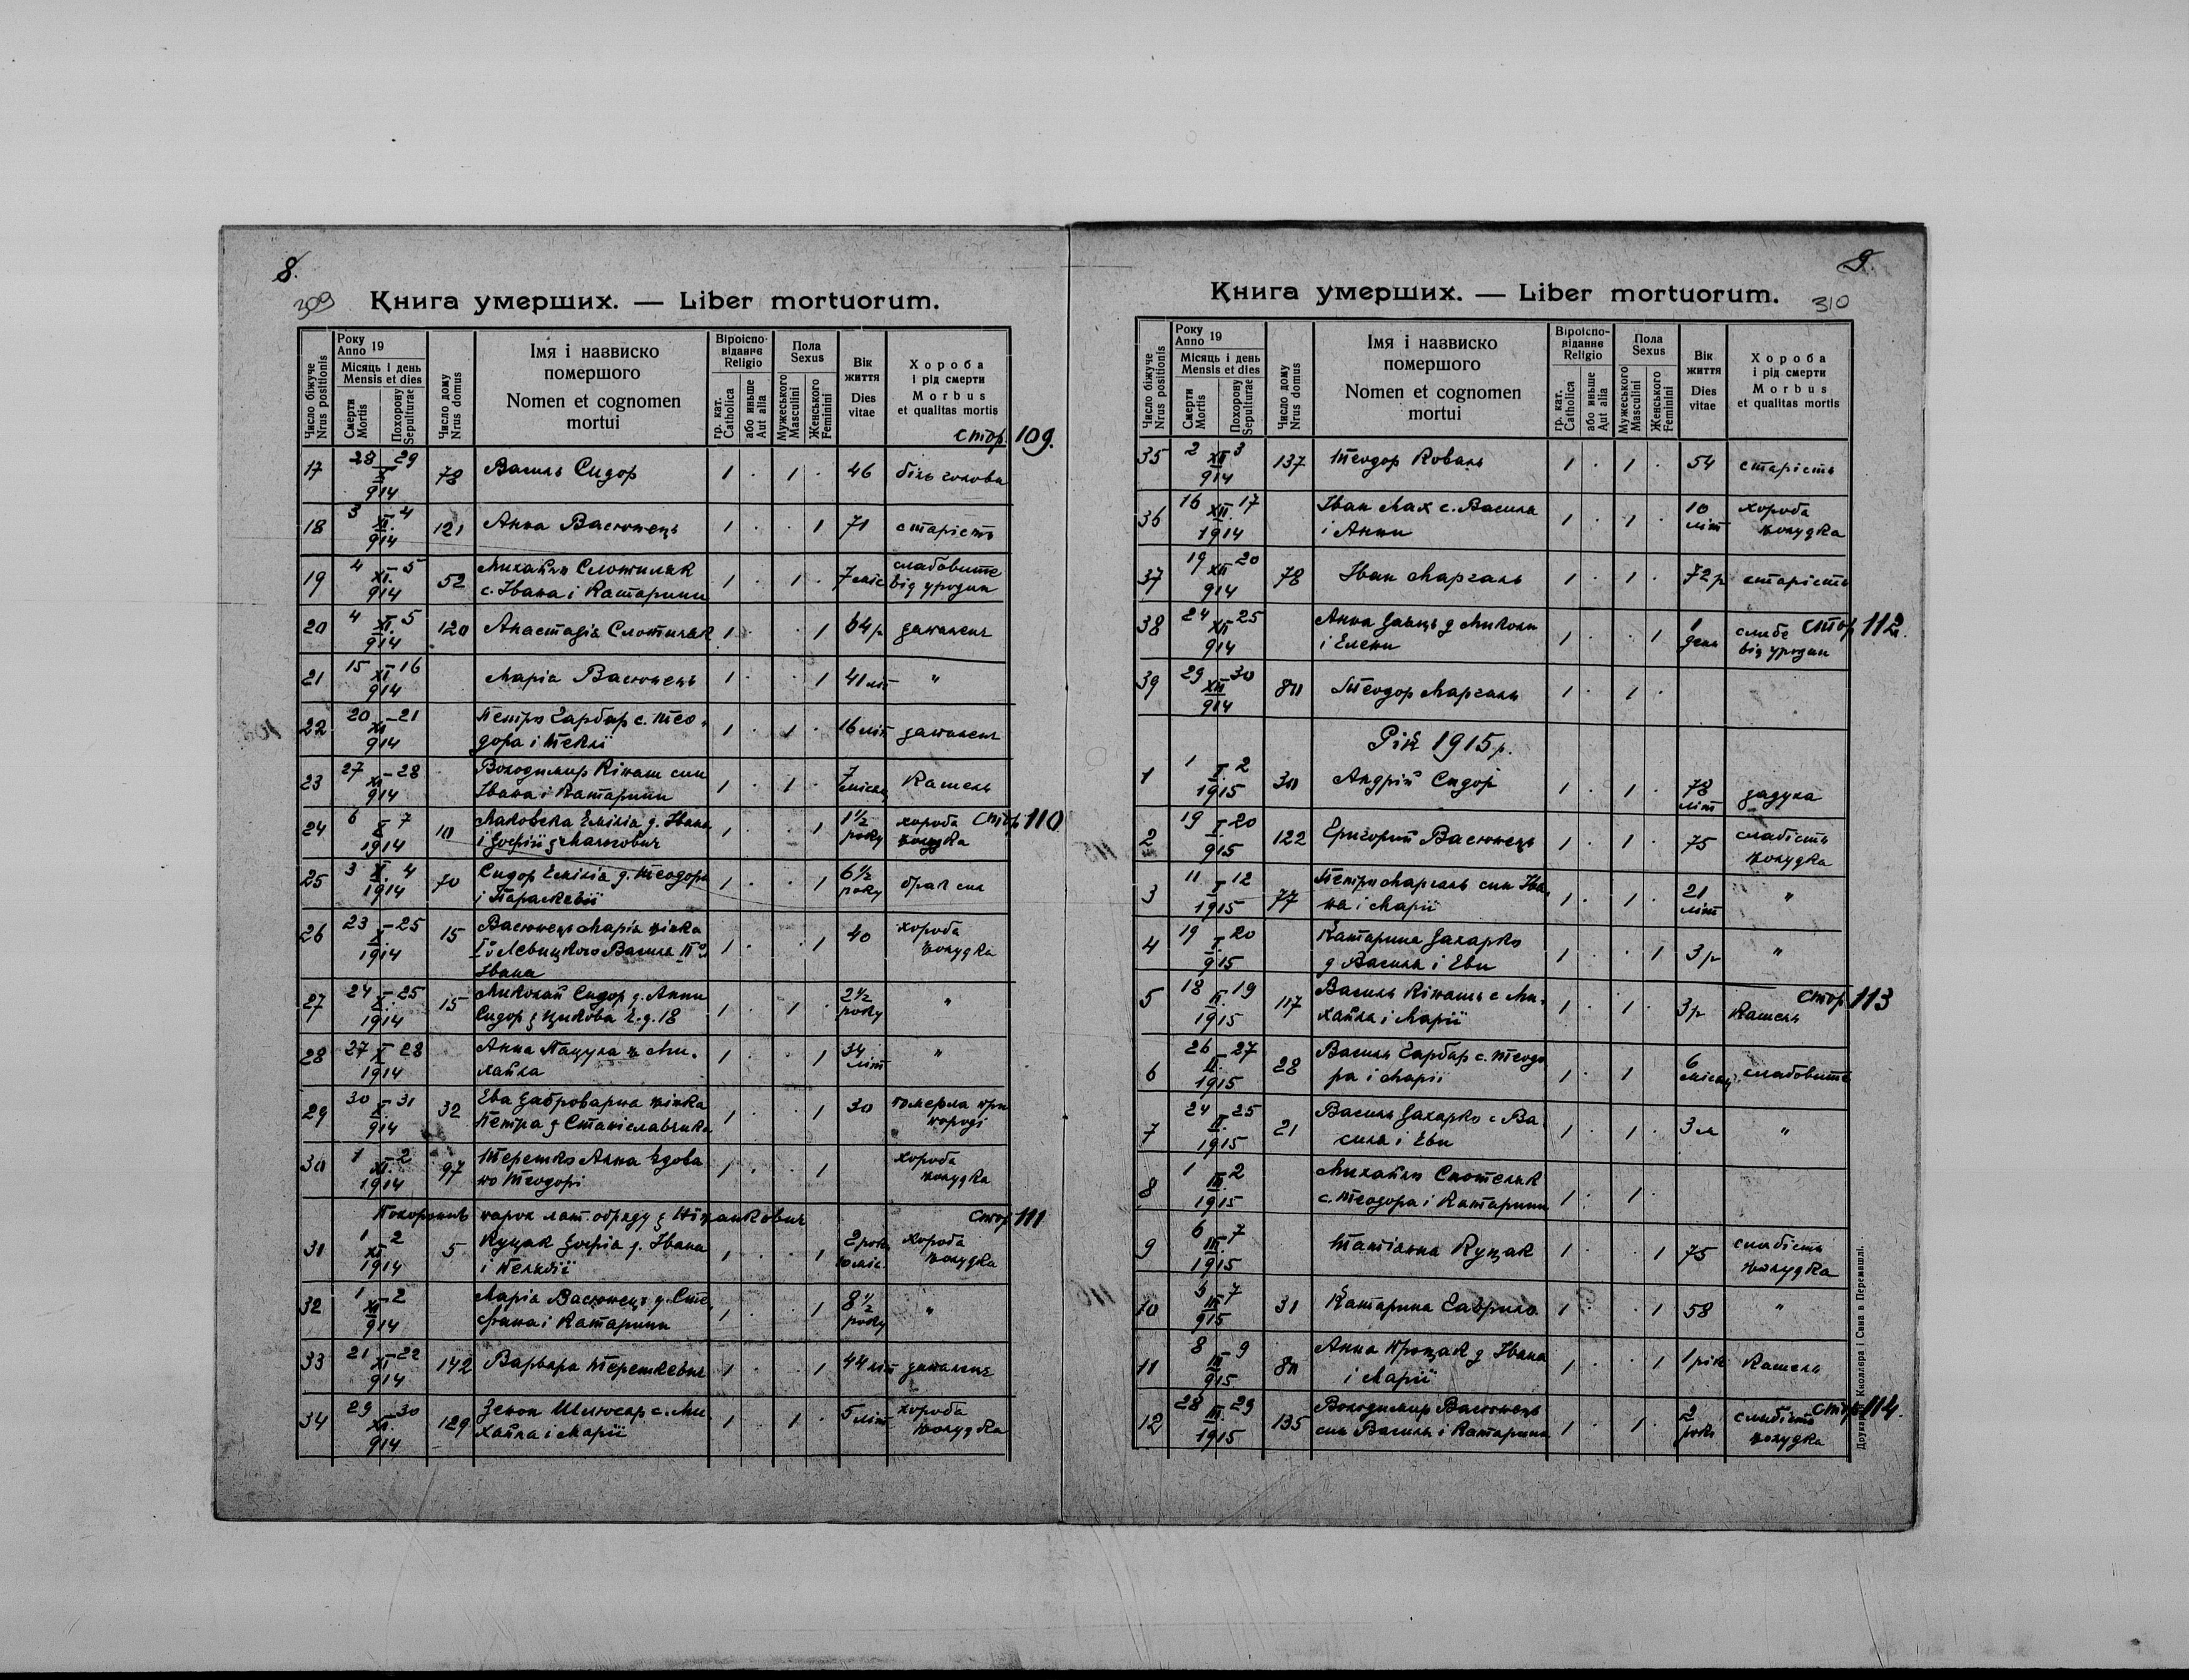 8.
309
Книга умерших. — Liber mortuorum.
Число біжуче Nrus positionis
Року Anno 19
Місяць і день Mensis et dies
Смерти Mortis
Похорону Sepulturae
Число дому Nrus domus
Імя і назвиско
помершого
Nomen et cognomen
mortui
Віроіспо-
віданнє
Religio
гр. кат. Catholica
або иньше Aut alia
Пола
Sexus
Мужеського Masculini
Женського Feminini
Вік
життя
Dies
vitae
Хороба
і рід смерти
Morbus
et qualitas mortis
стор. 109.
17 28 X 29 914 78 Василь Сидор 1 . 1 . 46 біль голови
18 3 XI. 4 914 121 Анна Васюнець 1 . . 1 71 старість
19 4 XI. 5 914 52 Михайло Слотиляк 1 . 1 . 7 міс слабовите
с. Івана і Катарини від уродин
20 4 XI. 5 914 120 Анастазія Слотиляк 1 . . 1 64 р
21 15 XI 16 914 Марія Васюнець 1 . . 1 41 літ "
22 20 XI 21 914 Петро Гарбар с. Тео- 1 . 1 . 16 літ
дора і Теклі
23 27 XI 28 914 Володимир Кінаш син 1 . 1 . 7 місяц Кашель
Івана і Катарини
24 6 X 7 1914 10 Маковска Емілія д. Івана 1 . . 1 1½ року хороба стор 110
і Зофії з жолудка
25 3 X. 4 1914 70 Сидор Емілія д. Теодора 1 . . 1 6½ року брак сил
і Параскевії
26 23 X 25 1914 15 Васюнець Марія жінка 1 . . 1 40 хороба
I˚ Левицкого Василя II˚ жолудка
Івана
27 24 X. 25 1914 15 Миколай Сидор д. Анни 1 . 1 . 2½ року "
Сидор з ч.д. 18
28 27 X 28 1914 Анна Пацула ж Ми- 1 . . 1 34 літ "
хайла
29 30 X. 31 914 32 Ева жінка 1 . . 1 30 померла при
Петра з породі
30 1 XI. 2 1914 97 Терешко Анна вдова 1 . . 1 хороба
по Теодорі жолудка
Похоронив парох лат. обряду з Нижанкович стор 111
31 1 XI. 2 1914 5 Куцак Зофія д. Івана 1 . . 1 2 роки 10 міс. хороба
і жолудка
32 1 XII 2 914 Марія Васюнець д. Сте- 1 . . 1 8½ року "
фана і Катарини
33 21 XI 22 914 142 Варвара Терешкевич 1 . . 1 44 літ
34 29 XI. 30 914 129 Зенон Шлюсар с. Ми- 1 . 1 . 5 літ хороба
хайла і Марії жолудка
9.
310
Книга умерших. — Liber mortuorum.
Число біжуче Nrus positionis
Року Anno 19
Місяць і день Mensis et dies
Смерти Mortis
Похорону Sepulturae
Число дому Nrus domus
Імя і назвиско
помершого
Nomen et cognomen
mortui
Віроіспо-
віданнє
Religio
гр. кат. Catholica
або иньше Aut alia
Пола
Sexus
Мужеського Masculini
Женського Feminini
Вік
життя
Dies
vitae
Хороба
і рід смерти
Morbus
et qualitas mortis
35 2 XII 3 914 137 Теодор Коваль 1 . 1 . 54 старість
36 16 XII. 17 1914 Іван Мах с. Василя 1 . 1 . 10 літ хороба
і Анни жолудка
37 19 XII 20 914 78 Іван Маргаль 1 . 1 . 72 р старість
38 24 XII 25 914 Анна Заяць д Миколи 1 . . 1 1 день слабе стор 112.
і Елени від уродин
39 29 XII 30 914 80 Теодор Маргаль 1 . 1 .
Рік 1915 р.
1 1 I. 2 1915 30 Андрій Сидор 1 . 1 . 78 літ задуха
2 19 I 20 915 122 Григорий Васюнець 1 . 1 . 75 слабість
жолудка
3 11 I 12 1915 77 Петро Маргаль син Іва- 1 . 1 . 21 літ "
на і Марії
4 19 I 20 915 Катарина Захарко 1 . . 1 3 р "
д Василя і Еви
5 18 II. 19 1915 117 Василь Кінаш с Ми- 1 . 1 . 3 р Кашель стор 113
хайла і Марії
6 26 II. 27 1915 28 Василь Гарбар с. Теодо 1 . 1 6 місяц слабовите
ра і Марії
7 24 II. 25 1915 21 Василь Захарко с Ва 1 . 1 . 3 м "
силя і Еви
8 1 III. 2 1915 Михайло Слотеляк 1 . 1 .
с. Теодора і Катарини
9 6 III. 7 1915 Татіянна Куцак 1 . . 1 75 слабість
жолудка
10 6 III 7 915 31 Катарина Гаврило 1 . . 1 58 "
11 8 III 9 915 80 Анна Процак д Івана 1 . . 1 1 рік Кашель
і Марії
12 28 III. 29 1915 135 Володимир Васюнець 1 . 1 . 2 роки слабість стор 114.
син Василя і Катарини жолудка
Друкарня Кноллера і Сина в Перемишлі.